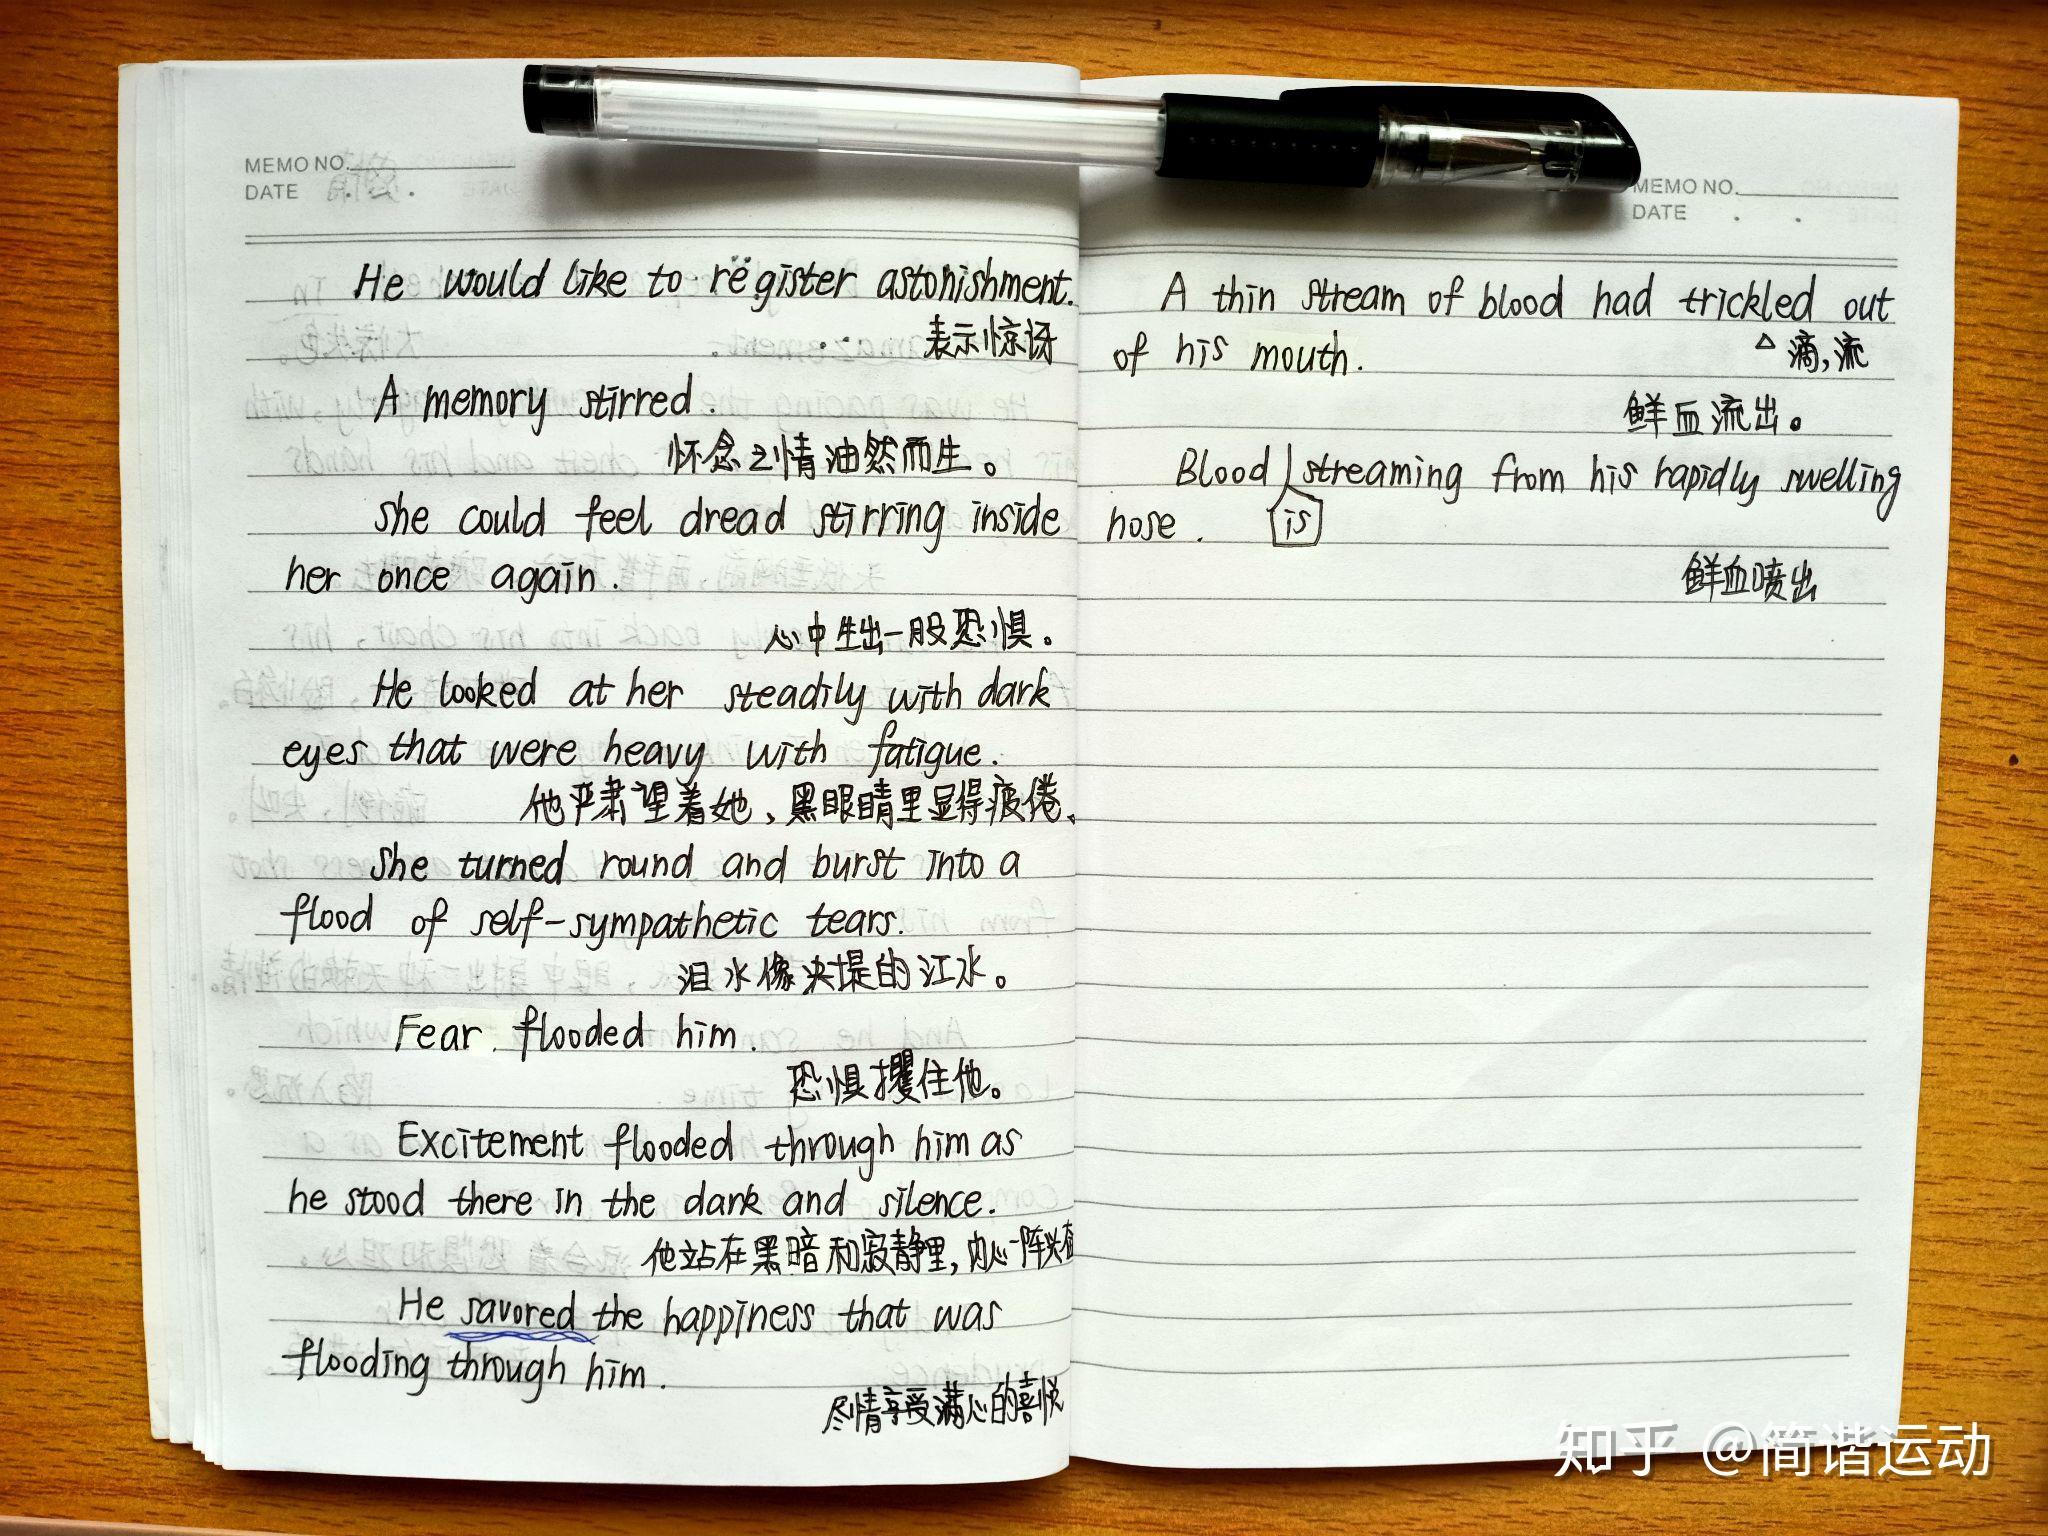 MEMO NO.
DATE . .
He would like to register astonishment.
表示惊讶
A memory stirred.
怀念之情油然而生。
she could feel dread stirring inside
her once again.
心中生出一股恐惧。
He looked at her steadily with dark
eyes that were heavy with fatigue.
他严肃望着她、黑眼睛里显得疲倦、
she turned round and burst into a
flood of self-sympathetic tears.
泪水像决堤的江水。
Fear flooded him.
恐惧攫住他。
Excitement flooded through him as
he stood there in the dark and silence.
他站在黑暗和寂静里，内心一阵兴奋
He savored the happiness that was
flooding through him.
尽情享受满心的喜悦
MEMO NO.
DATE . .
A thin stream of blood had trickled out
of his mouth.
△滴，流
鲜血流出。
Blood streaming from his rapidly swelling
nose. is
鲜血喷出
知乎 @简谐运动